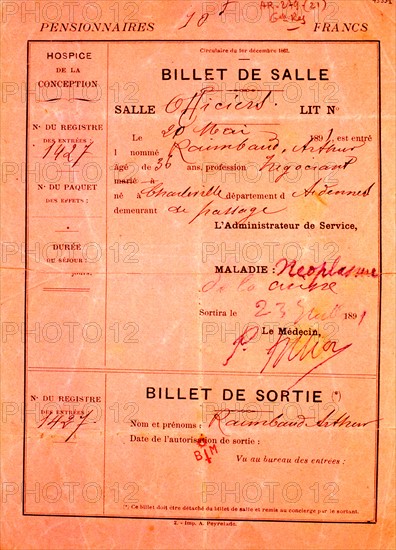 PENSIONNAIRES 10 F FRANCS
AR-279 (21)
Gde Res
Circulaire du 1er décembre 1863.
HOSPICE
DE LA
CONCEPTION
BILLET DE SALLE
SALLE Officiers LIT No
Le 20 Mai 1891, est entré
l nommé Raimbaud Arthur
âgé de 36 ans, profession Négociant
marié à
né à Charleville département d Ardennes
demeurant de passage
L'Administrateur de Service,
No DU REGISTRE
DES ENTRÉES :
1427
No DU PAQUET
DES EFFETS :
DURÉE
DU SÉJOUR :
jours.
MALADIE : Néoplasme
de la cuisse
Sortira le 23 Juill 1891
Le Médecin,
BILLET DE SORTIE (*)
No DU REGISTRE
DES ENTRÉES :
1427
Nom et prénoms : Raimbaud Arthur
Date de l'autorisation de sortie :
BM
Vu au bureau des entrées :
(*) Ce billet doit être détaché du billet de salle et remis au concierge par le sortant.
2. – Imp. A. Peyrelade.
PHOTO12